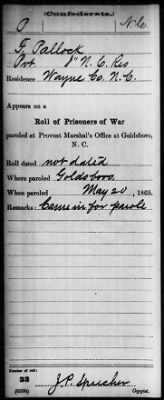 Confederate.
P N.C.
F. Pallock
Pvt 8" N.C. Res
Residence Wayne Co. N.C.
Appears on a
Roll of Prisoners of War
paroled at Provost Marshal's Office at Goldsboro,
N. C.
Roll dated not dated
Where paroled Goldsboro
When paroled May 20, 1865.
Remarks: Came in for parole
Number of roll:
22
J.P. Sprecher
Copyist.